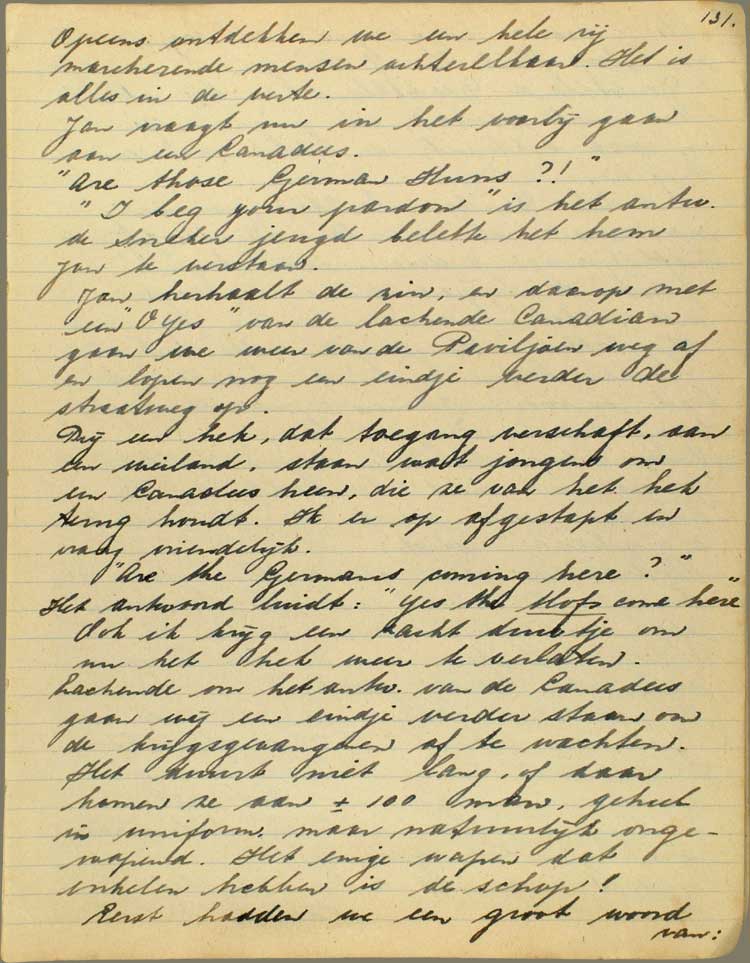 131.
Opeens ontdekken we een hele rij
marcherende mensen achterelkaar. Het is
alles in de verte.
Jan vraagt nu in het voorbij gaan
aan een Canadees.
"Are those German Huns ?!"
"I beg your pardon" is het antw.
de smeker jeugd belette het hem
Jan te verstaan.
Jan herhaalt de zin, en daarop met
een "O Yes" van de lachende Canadian
gaan we weer van de Paviljoen weg af
en lopen nog een eindje verder de
straatweg op.
Bij een hek, dat toegang verschaft, aan
een weiland, staan wat jongens om
een Canadees heen, die ze van het hek
terug houdt. Ik er op afgestapt en
vraag vriendelijk.
"Are the Germans coming here ?"
Het antwoord luidt: "Yes the Mofs come here"
Ook ik krijg een zacht duwtje om
nu het hek weer te verlaten.
Lachende om het antw. van de Canadees
gaan wij een eindje verder staan om
de krijgsgevangenen af te wachten.
Het duurt niet lang, of daar
komen ze aan ± 100 man, geheel
in uniform, maar natuurlijk onge-
wapend. Het enige wapen dat
enkelen hebben is de schop!
Eerst hadden we een groot woord
van: